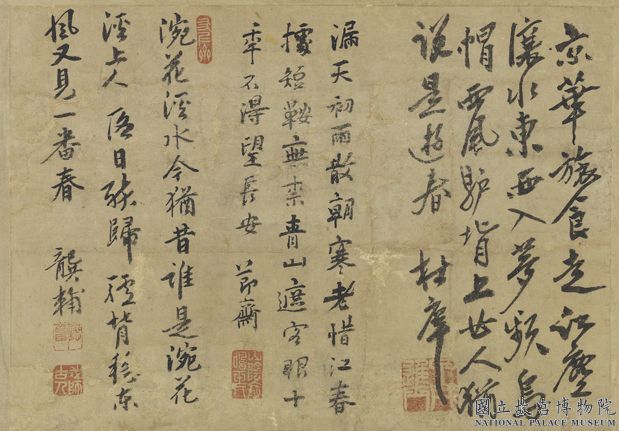 京華旅食走紅塵
瀼水東西入夢頻烏
帽西風驢背上世人猶
說是遊春 杜庠
漏天初雨散朝寒老惜江春
據短鞍無柰青山遮客眼十
年不得望長安 節齋
浣花溪水今猶昔誰是浣花
溪上人落日醉歸驢背穩東
風又見一番春 龔輔
國立故宮博物院
NATIONAL PALACE MUSEUM